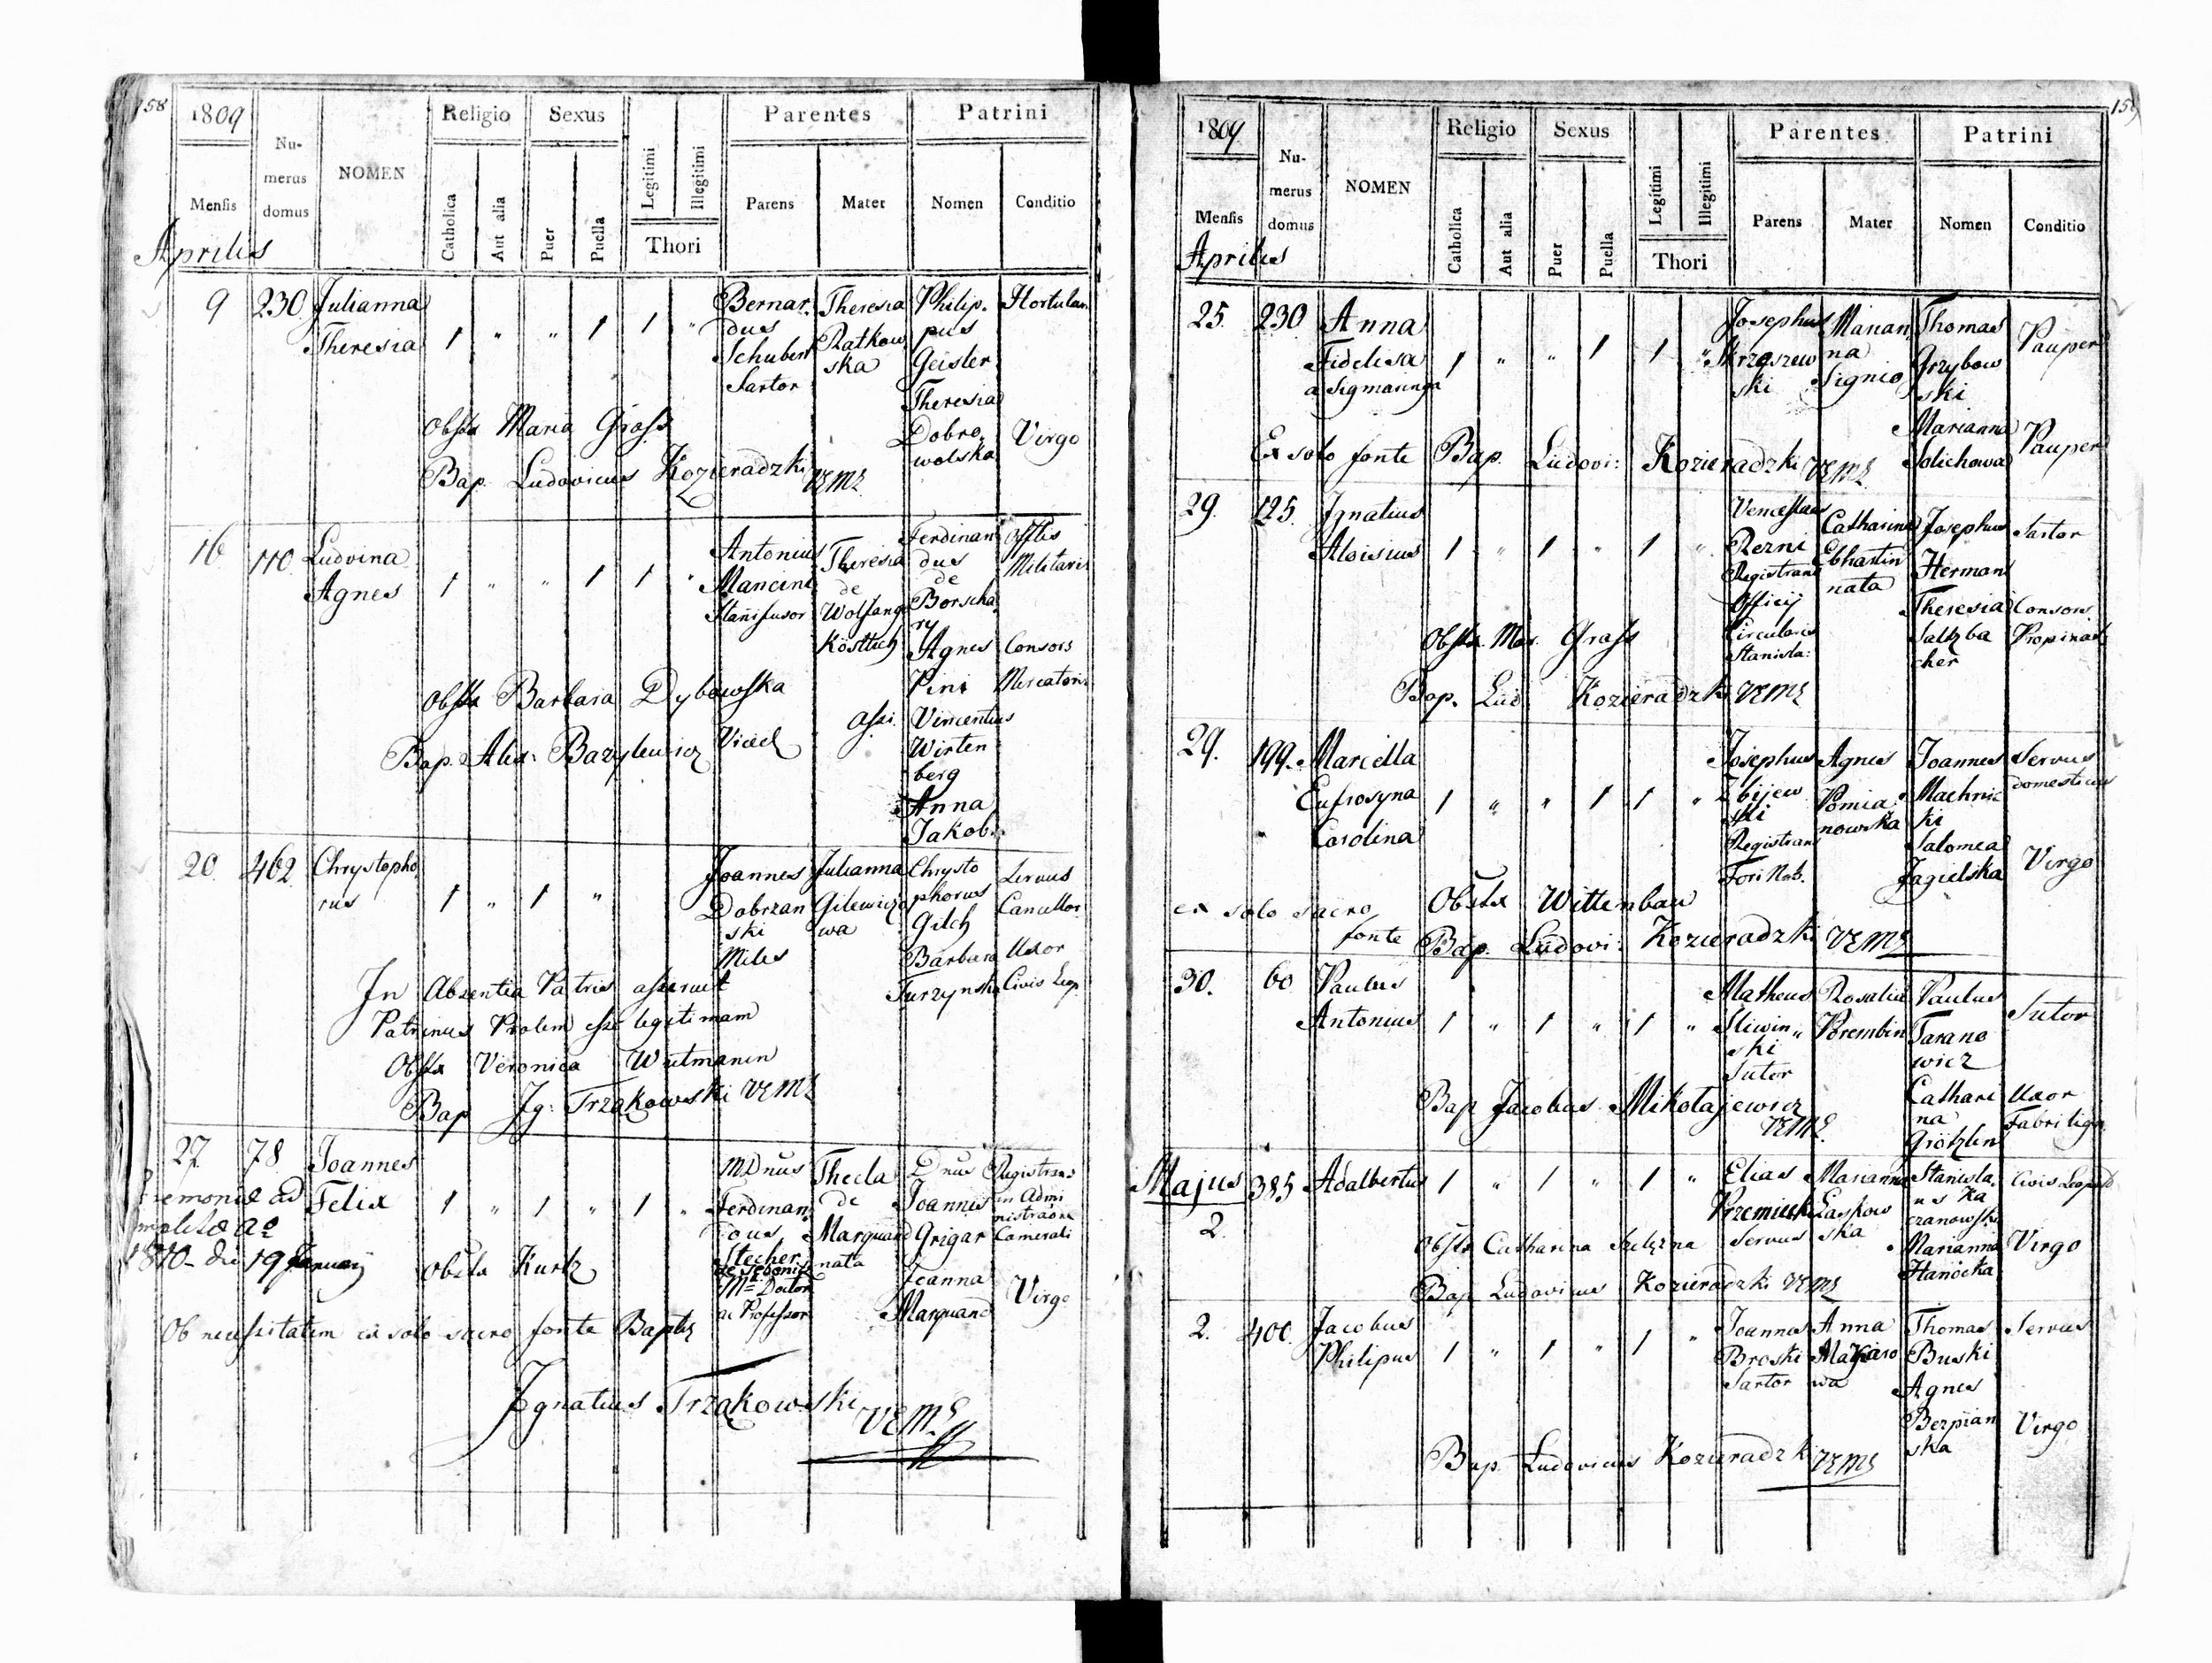 158
1809
Numerus domus
NOMEN
Religio
Sexus
Legitimi
Illegitimi
Thori
Parentes
Patrini
Mensis
Catholica
Aut alia
Puer
Puella
Parens
Mater
Nomen
Conditio
Aprilis
9 230 Julianna Theresia 1 " " 1 1 "
Bernardus Schubert Sartor
Theresia Ratkowska
Philippus Geisler
Hortulan
Theresia Dobrowolska
Virgo
Obstx Maria Gross
Bap. Ludovicus Kozieradzki VEME
16 110 Ludvina Agnes 1 " " 1 1 "
Antonius Mancini
Theresia de Wolfang Köstlich
Ferdinandus de Borschary
Offlis Militaris
Agnes Pini
Consors Mercatoris
Obstx Barbara Dybowska
assi. Vincentius Wirtenberg
Anna Jakob
Bap. Alex: Bazylewicz Vicel
20 462 Chrystophorus 1 " 1 "
Joannes Dobrzanski Miles
Julianna Gilewiczowa
Chrystophorus Gilch
Servus Cancellar
Barbara Turzynska
Uxor Civis Leop.
In Absentia Patris asseruit
Patrinus Prolem esse legitimam
Obstx Veronica Wutmanin
Bap Ig: Trzakowski VEME
27 78 Joannes Felix 1 " 1 " 1 "
MDnus Ferdinandus Stecher de Sebenitz Doctor ac Professor
Thecla de Marquand nata
Dnus Joannes Grigar
Registrans in Administraone Camerali
Joanna Marquand
Virgo
1810 - die 19 January
Obstx Kurtz
Ob necessitatem ex solo sacro fonte Baptz
Ignatius Trzakowski VEME
159
1809
Numerus domus
NOMEN
Religio
Sexus
Legitimi
Illegitimi
Thori
Parentes
Patrini
Mensis
Catholica
Aut alia
Puer
Puella
Parens
Mater
Nomen
Conditio
Aprilis
25. 230 Anna Fidelisa a Sigmaringa 1 " " 1 1 "
Josephus Skrzeszewski
Marianna Signio
Thomas Grzybowski
Pauper
Marianna Solichowa
Pauper
Ex solo fonte Bap. Ludovi: Kozieradzki VEME
29. 125. Ignatius Aloisius 1 " 1 " 1 "
Venceslaus Rezni Registrans Officij Circularis Stanisla:
Catharina Ebhartin nata
Josephus Herman
Sartor
Theresia Saltzbacher
Consors Propinat
Obstx Mar. Grass
Bap. Lud. Kozieradzki VEME
29. 199. Marcella Eufrosyna Carolina 1 " " 1 1 "
Josephus Zbijewski Registrans Fori Nob.
Agnes Pomianowska
Joannes Machnicki
Servus domesticus
Salomea Jagielska
Virgo
Obstx Wittenbau
ex solo sacro fonte Bap. Ludovi: Kozieradzki VEME
30. 60 Paulus Antonius 1 " 1 " 1 "
Matheus Sliwinski Sutor
Rosalia Porembin
Paulus Taranowicz
Sutor
Catharina Grötzlin
Uxor Fabri lign
Bap Jacobus Mikołajewicz VEME
Majus
2. 385 Adalbertus 1 " 1 " 1 "
Elias Przemicki Servus
Marianna Laskowska
Stanislaus Kaczanowski
Civis Leopold
Marianna Hanócka
Virgo
Obstx Catharina Szelszna
Bap Ludovicus Kozieradzki VEME
2. 400. Jacobus Philipus 1 " 1 " 1 "
Joannes Broski Sartor
Anna
Thomas Buski
Servus
Agnes Berpianska
Virgo
Bap. Ludovicus Kozieradzki VEME